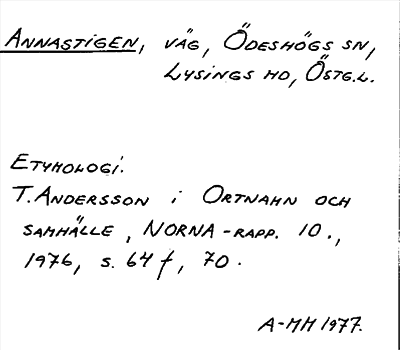 Annastigen, väg, Ödeshögs sn,
Lysings hd, Östg.l.
Etymologi.
T. Andersson i Ortnamn och
samhälle, NORNA-rapp. 10.,
1976, s. 64 f, 70.
A-MH 1977.